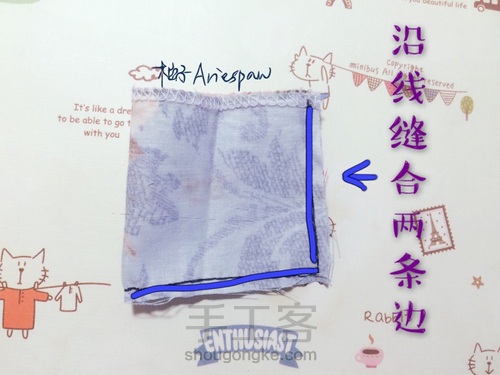 beautiful life
柚子Ariespaw
copyright
minibus All rights reserved
It's like a dre
to be able to go t
with you
沿线缝合两条边
Rabb
手工客
ENTHUSIAST
shougongke.com